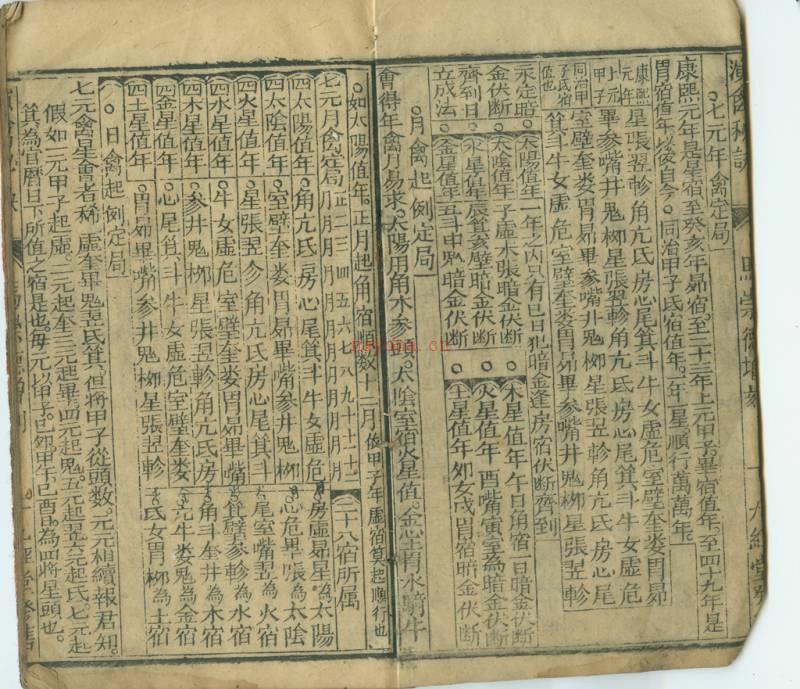 演禽秘訣
○七元年禽定局
康熙元年是星宿至癸亥年昴宿至二十三年上元甲子畢宿值年至四十九年是
胃宿值年以後自今同治甲子氐宿值年一年一星順行萬萬年
康熙元年 星張翌軫角亢氐房心尾箕斗牛女虛危室壁奎娄胃昴
上元甲子 畢參嘴井鬼桞星張翌軫角亢氐房心尾箕斗牛女虛危
同治甲子氐宿值也 室壁奎娄胃昴畢參嘴井鬼桞星張翌軫角亢氐房心尾
箕斗牛女虛危室壁奎娄胃昴畢參嘴井鬼桞星張翌軫
永定暗金伏断齊到日立成法
○太陽值年一年之内只有巳日犯暗金逢房宿伏断齊到
○太陰值年子虛未張暗金伏断
○水星值年辰箕亥壁暗金伏断
○金星值年丑斗申鬼暗金伏断
○木星值年午日角宿一日暗金伏断
○火星值年酉嘴寅室為暗金伏断
○土星值年卯女戌胃宿暗金伏断
○月禽起例定局
會得年禽月易求太陽用角木參
太陰室宿火星值金心土胃水騎牛
○如太陽值年正月起角宿順数十二月 假甲子年虛宿算起順行也
七元月禽定局 正月二月三月四月五月六月七月八月九月十月十一月十二月
四太陽值年 角亢氐房心尾箕斗牛女虛危
四太陰值年 室壁奎娄胃昴畢嘴參井鬼桞
四火星值年 星張翌軫角亢氐房心尾箕斗
四水星值年 牛女虛危室壁奎娄胃昴畢嘴
四木星值年 參井鬼桞星張翌軫角亢氐房
四金星值年 心尾箕斗牛女虛危室壁奎娄
四土星值年 胃昴畢嘴參井鬼桞星張翌軫
二十八宿所属
房虛昴星為太陽
心危畢張為太陰
尾室嘴翌為火宿
箕壁參軫為水宿
角斗奎井為木宿
亢牛娄鬼為金宿
氐女胃桞為土宿
○日禽起例定局
七元禽星會者稀虛奎畢鬼翌氐箕但將甲子從頭数元元相續報君知
假如一元甲子起虛二元起奎三元起畢四元起鬼五元起翌六元起氐七元起
箕為官曆日下所值之宿是也每元以甲子己卯甲午己酉為四將星頭也